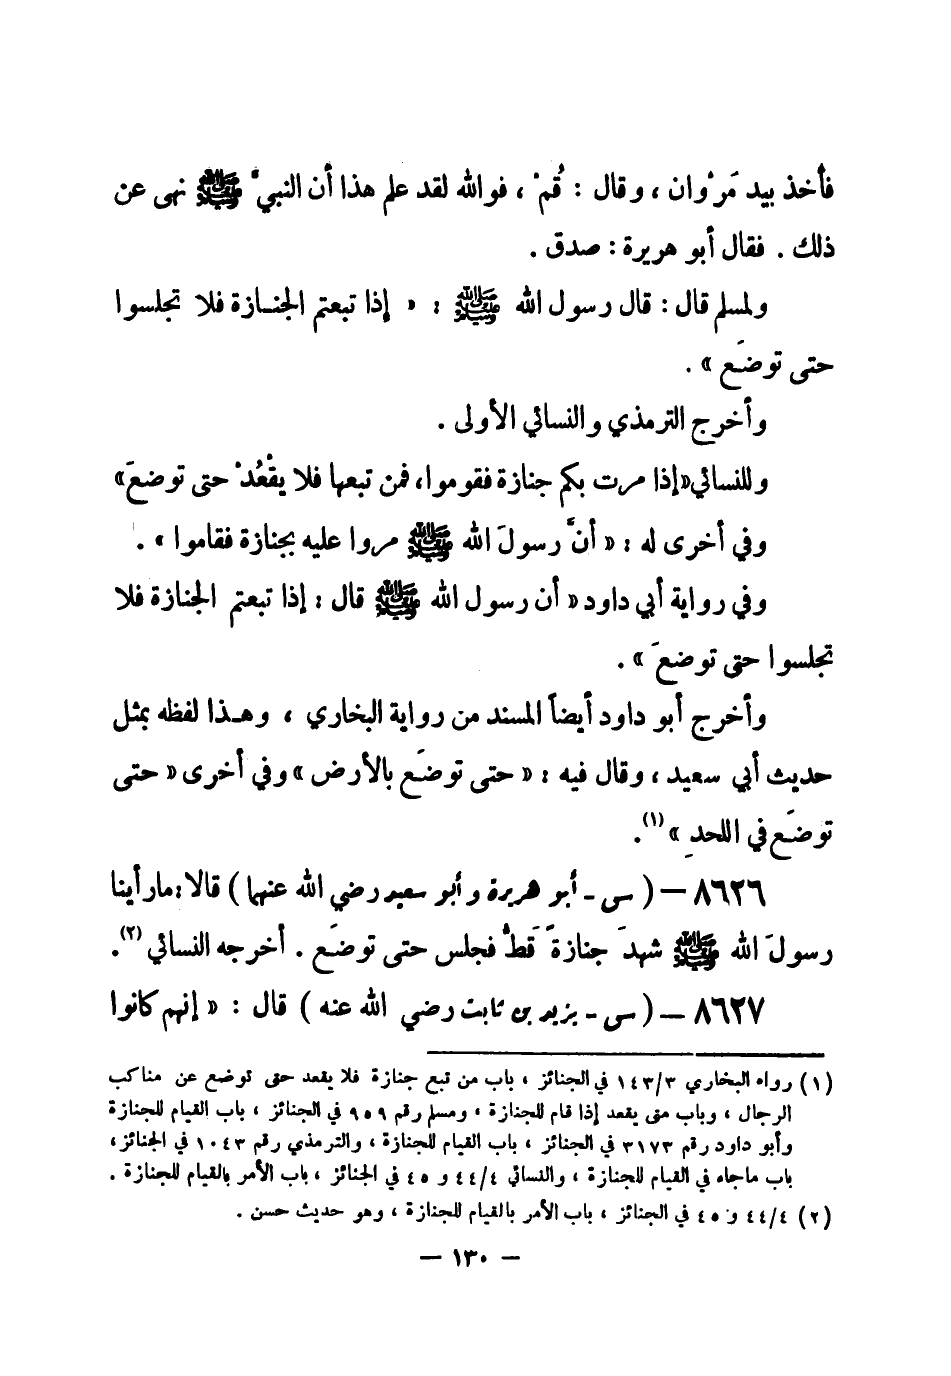 فأخذ بيد مَرْوان ، وقال : قُمْ ، فوالله لقد علم هذا أن النبيَّ ﷺ نهى عن
ذلك . فقال أبو هريرة : صدق .
ولمسلم قال : قال رسول الله ﷺ : « إذا تبعتم الجنـازة فلا تجلسوا
حتى توضَع » .
وأخرج الترمذي والنسائي الأولى .
وللنسائي «إذا مرت بكم جنازة فقوموا، فمن تبعها فلا يقْعُدْ حتى توضعَ»
وفي أخرى له : « أنَّ رسولَ الله ﷺ مروا عليه بجنازة فقاموا » .
وفي رواية أبي داود « أن رسول الله ﷺ قال : إذا تبعتم الجنازة فلا
تجلسوا حتى توضعَ » .
وأخرج أبو داود أيضاً المسند من رواية البخاري ، وهـذا لفظه بمثل
حديث أبي سعيد ، وقال فيه : « حتى توضَع بالأرض » وفي أخرى « حتى
توضَع في اللحدِ » (١).
٨٦٢٦ — ( س - أبو هريرة وأبو سعيد رضي الله عنهما ) قالا : ما رأينا
رسولَ الله ﷺ شهدَ جنازةً قَطُّ فجلس حتى توضَع . أخرجه النسائي (٢).
٨٦٢٧ — ( س - يزيد بن ثابت رضي الله عنه ) قال : « إنهم كانوا
(١) رواه البخاري ١٤٣/٣ في الجنائز ، باب من تبع جنازة فلا يقعد حتى توضع عن مناكب
الرجال ، وباب متى يقعد إذا قام للجنازة ، ومسلم رقم ٩٥٩ في الجنائز ، باب القيام للجنازة
وأبو داود رقم ٣١٧٣ في الجنائز ، باب القيام للجنازة ، والترمذي رقم ١٠٤٣ في الجنائز ،
باب ماجاء في القيام للجنازة ، والنسائي ٤٤/٤ و ٤٥ في الجنائز ، باب الأمر بالقيام للجنازة .
(٢) ٤٤/٤ و ٤٥ في الجنائز ، باب الأمر بالقيام للجنازة ، وهو حديث حسن .
— ١٣٠ —